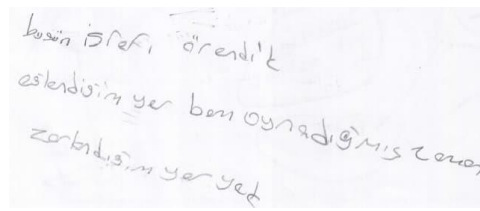 bugün isfefi örendik
eslendiğim yer ben oynadığmıs zaman
zorlndiğim yer yok